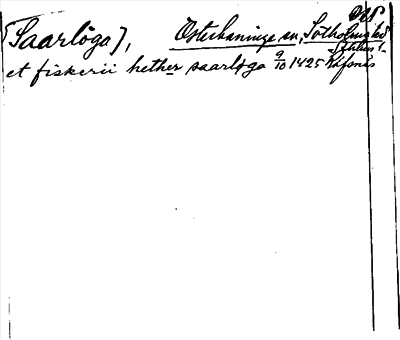 [Saarlöga], Österhaninge sn, Sotholms hd
et fiskerii hether saarløga 9/10 1425